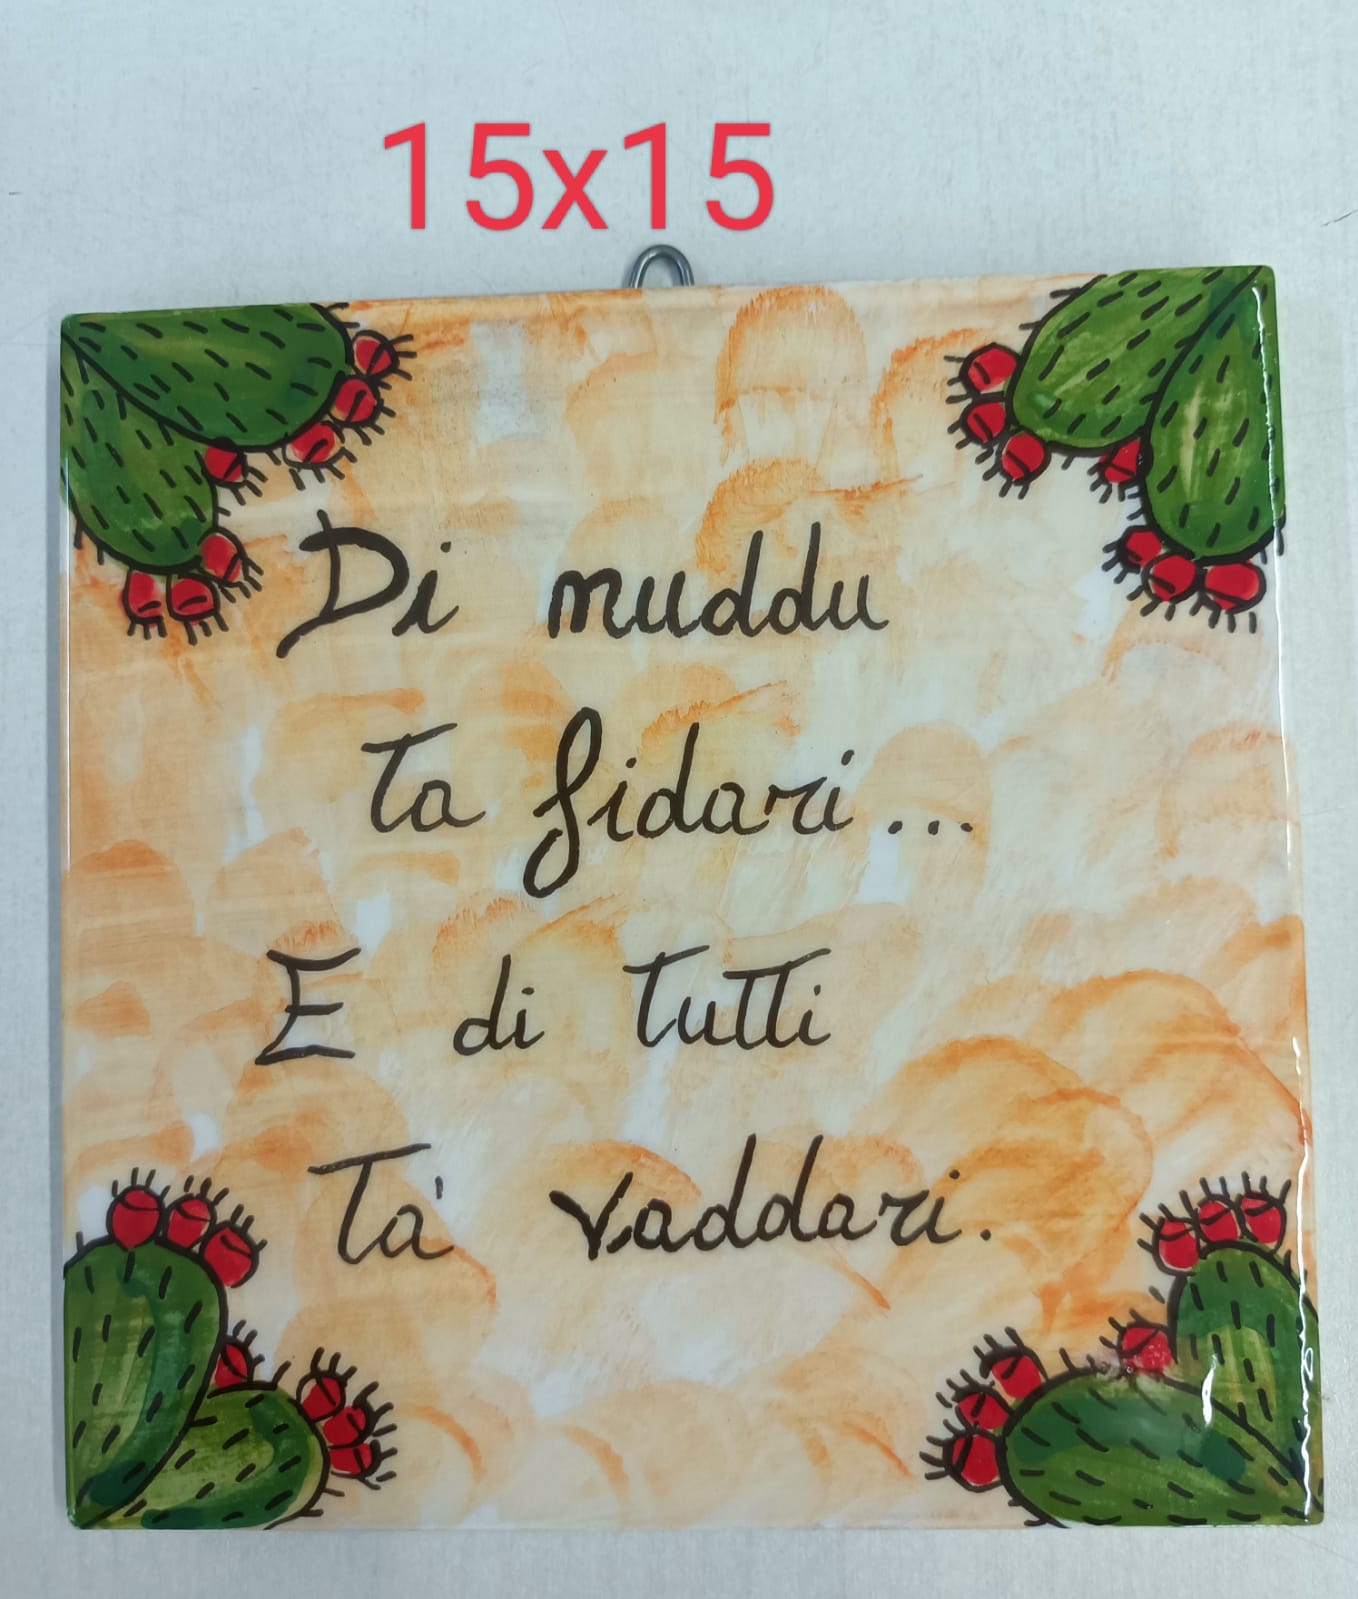 15x15
Di nuddu
ta fidari...
E di tutti
Ta' vaddari.